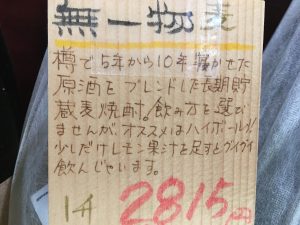 無一物麦
樽で5年から10年寝かせた
原酒をブレンドした長期貯
蔵麦焼酎。飲み方を選び
ませんが、オススメはハイボール!!
少しだけレモン果汁を足すとグイグイ
飲んじゃいます。
1升 2815円